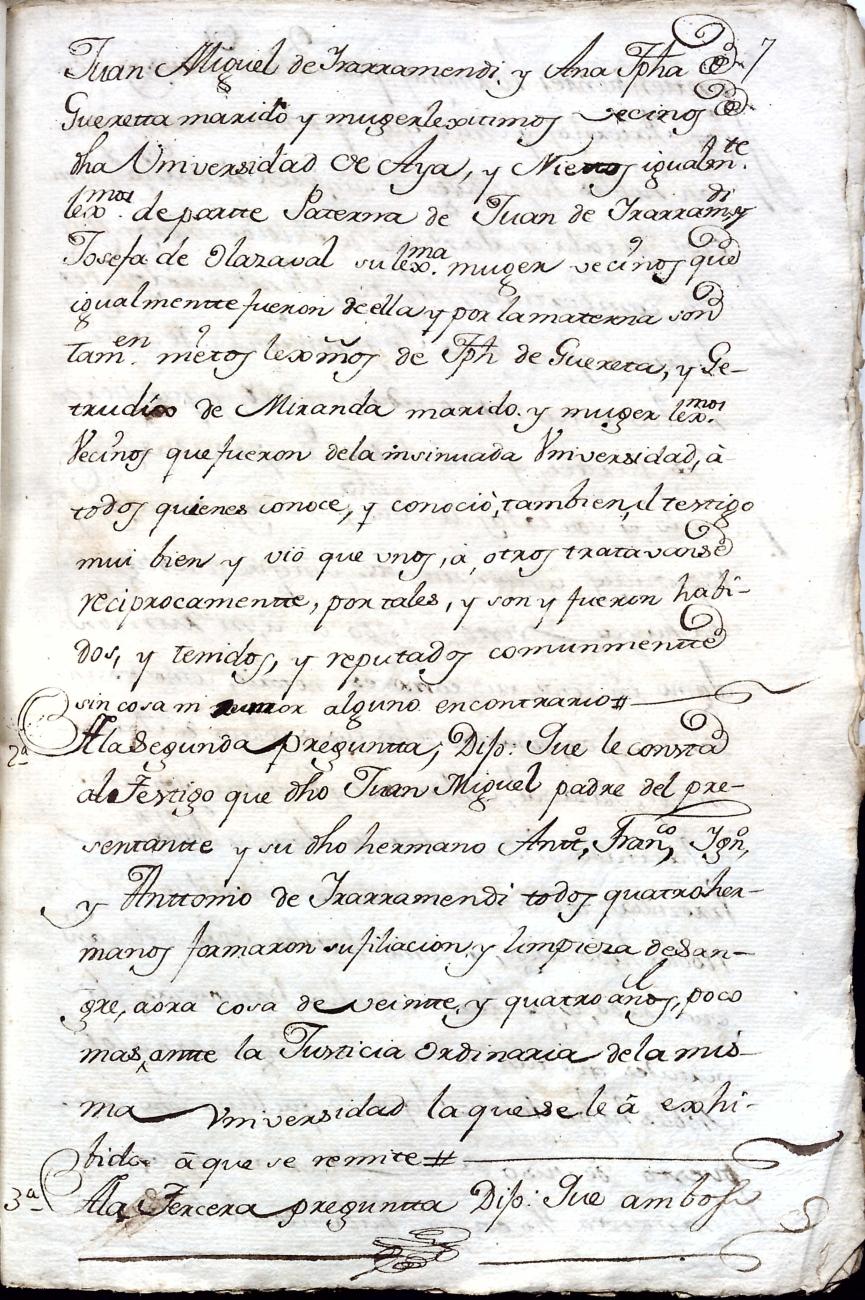 7
Juan Miguel de Yrarramendi y Ana Jpha de
Guereta marido y muger lexitimos vecinos de
dha Vniversidad de Aya, y Niettos igualmte.
lexmos. de partte Paterna de Juan de Yrarramdi y
Josefa de Olazaval su lexma. muger vecinos que
igualmentte fueron de ella y por la materna son
tamen. nietos lexmos de Jph de Guereta, y Ge-
trudis de Miranda marido y muger lexmos.
Vecinos que fueron dela insinuada Vniversidad, à
todos quienes conoce, y conociò, tambien, el testigo
mui bien y viò que vnos, à, otros tratavanse
reciprocamentte, por tales, y son y fueron habi-
dos, y tenidos, y reputados comunmentte
sin cosa ni rumor alguno encontrario #
2a. Ala Segunda preguntta, Dijo: Que le consta
al Testigo que dho Juan Miguel padre del pre-
sentantte y su dho hermano Antto, Franco, Ygno,
y Anttonio de Yrarramendi todos quatro her-
manos formaron su filiacion y limpieza de San-
gre, aora cosa de veintte, y quatro años, poco
mas, antte la Justicia Ordinaria dela mis-
ma Vniversidad la que se le à exhi-
bido à que se remite #
3a. Ala Tercera preguntta Dijo: Que ambos